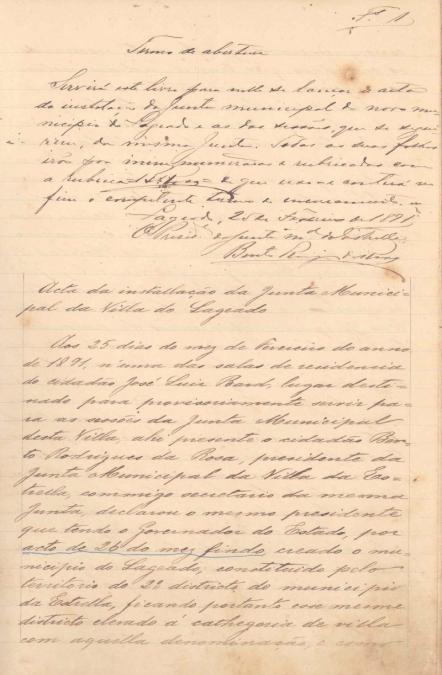 Termo de abertura
Servirá este livro para nelle se lançar a acta
da installação da Junta municipal do novo mu-
nicipio do Lageado e as das sessões, que se segui-
rem, da mesma Junta. Todas as suas folhas
irão por mim numeradas e rubricadas com
a rubrica e que usa e conterá no
fim o competente termo de encerramento
Lageado, 25 de Fevereiro de 1891
O Presid.e da junta m.al da Estrella
Bento Roiz da Rosa
Acta da installação da Junta Munici-
pal da Villa do Lageado
Aos 25 dias do mez de Fevereiro do anno
de 1891, n'uma das salas de residencia
do cidadão José Luiz Bard, lugar desti-
nado para provisoriamente servir pa-
ra as sessões da Junta Municipal
desta Villa, ahi presente o cidadão Ben-
to Rodrigues da Rosa, presidente da
Junta Municipal da Villa da Es-
trella, commigo secretario da mesma
Junta, declarou o mesmo presidente
que tendo o Governador do Estado, por
acto de 26 do mez findo, creado o mu-
nicipio do Lageado, constituido pelo
territorio do 2º districto do municipio
da Estrella, ficando portanto esse mesmo
districto elevado á cathegoria de villa
com aquella denominação, e como